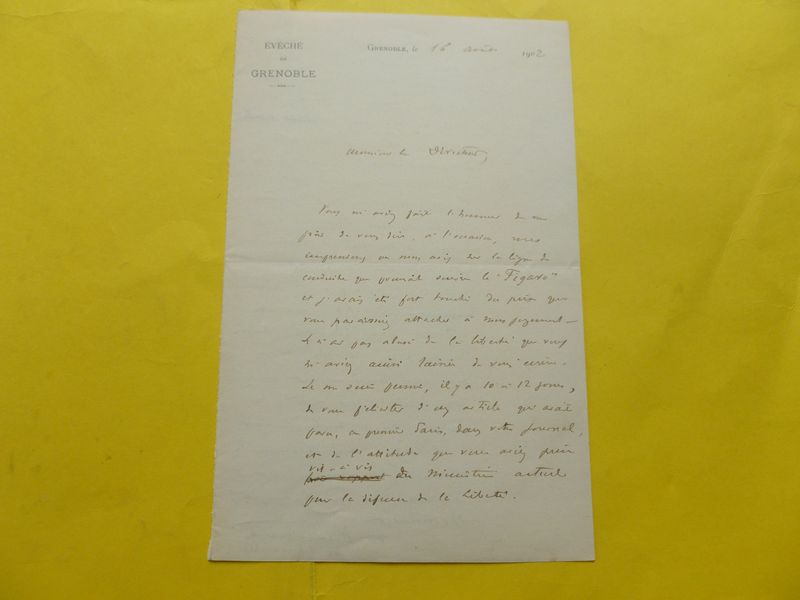 ÉVÊCHÉ
DE
GRENOBLE
GRENOBLE, le 16 août 1902
Monsieur le Directeur,
Vous m'aviez fait l'honneur de me
prier de vous dire, à l'occasion, mes
impressions ou mon avis sur la ligne de
conduite que pourrait suivre le "Figaro"
et j'avais été fort touché du prix que
vous paraissiez attacher à mon jugement -
Je n'ai pas abusé de la liberté que vous
m'aviez ainsi laissée de vous écrire.
Je me suis permis, il y a 10 à 12 jours,
de vous féliciter d'un article qui avait
paru, en premier Paris, dans votre journal,
et de l'attitude que vous aviez prise
vis-à-vis du Ministère actuel
pour la défense de la Liberté.